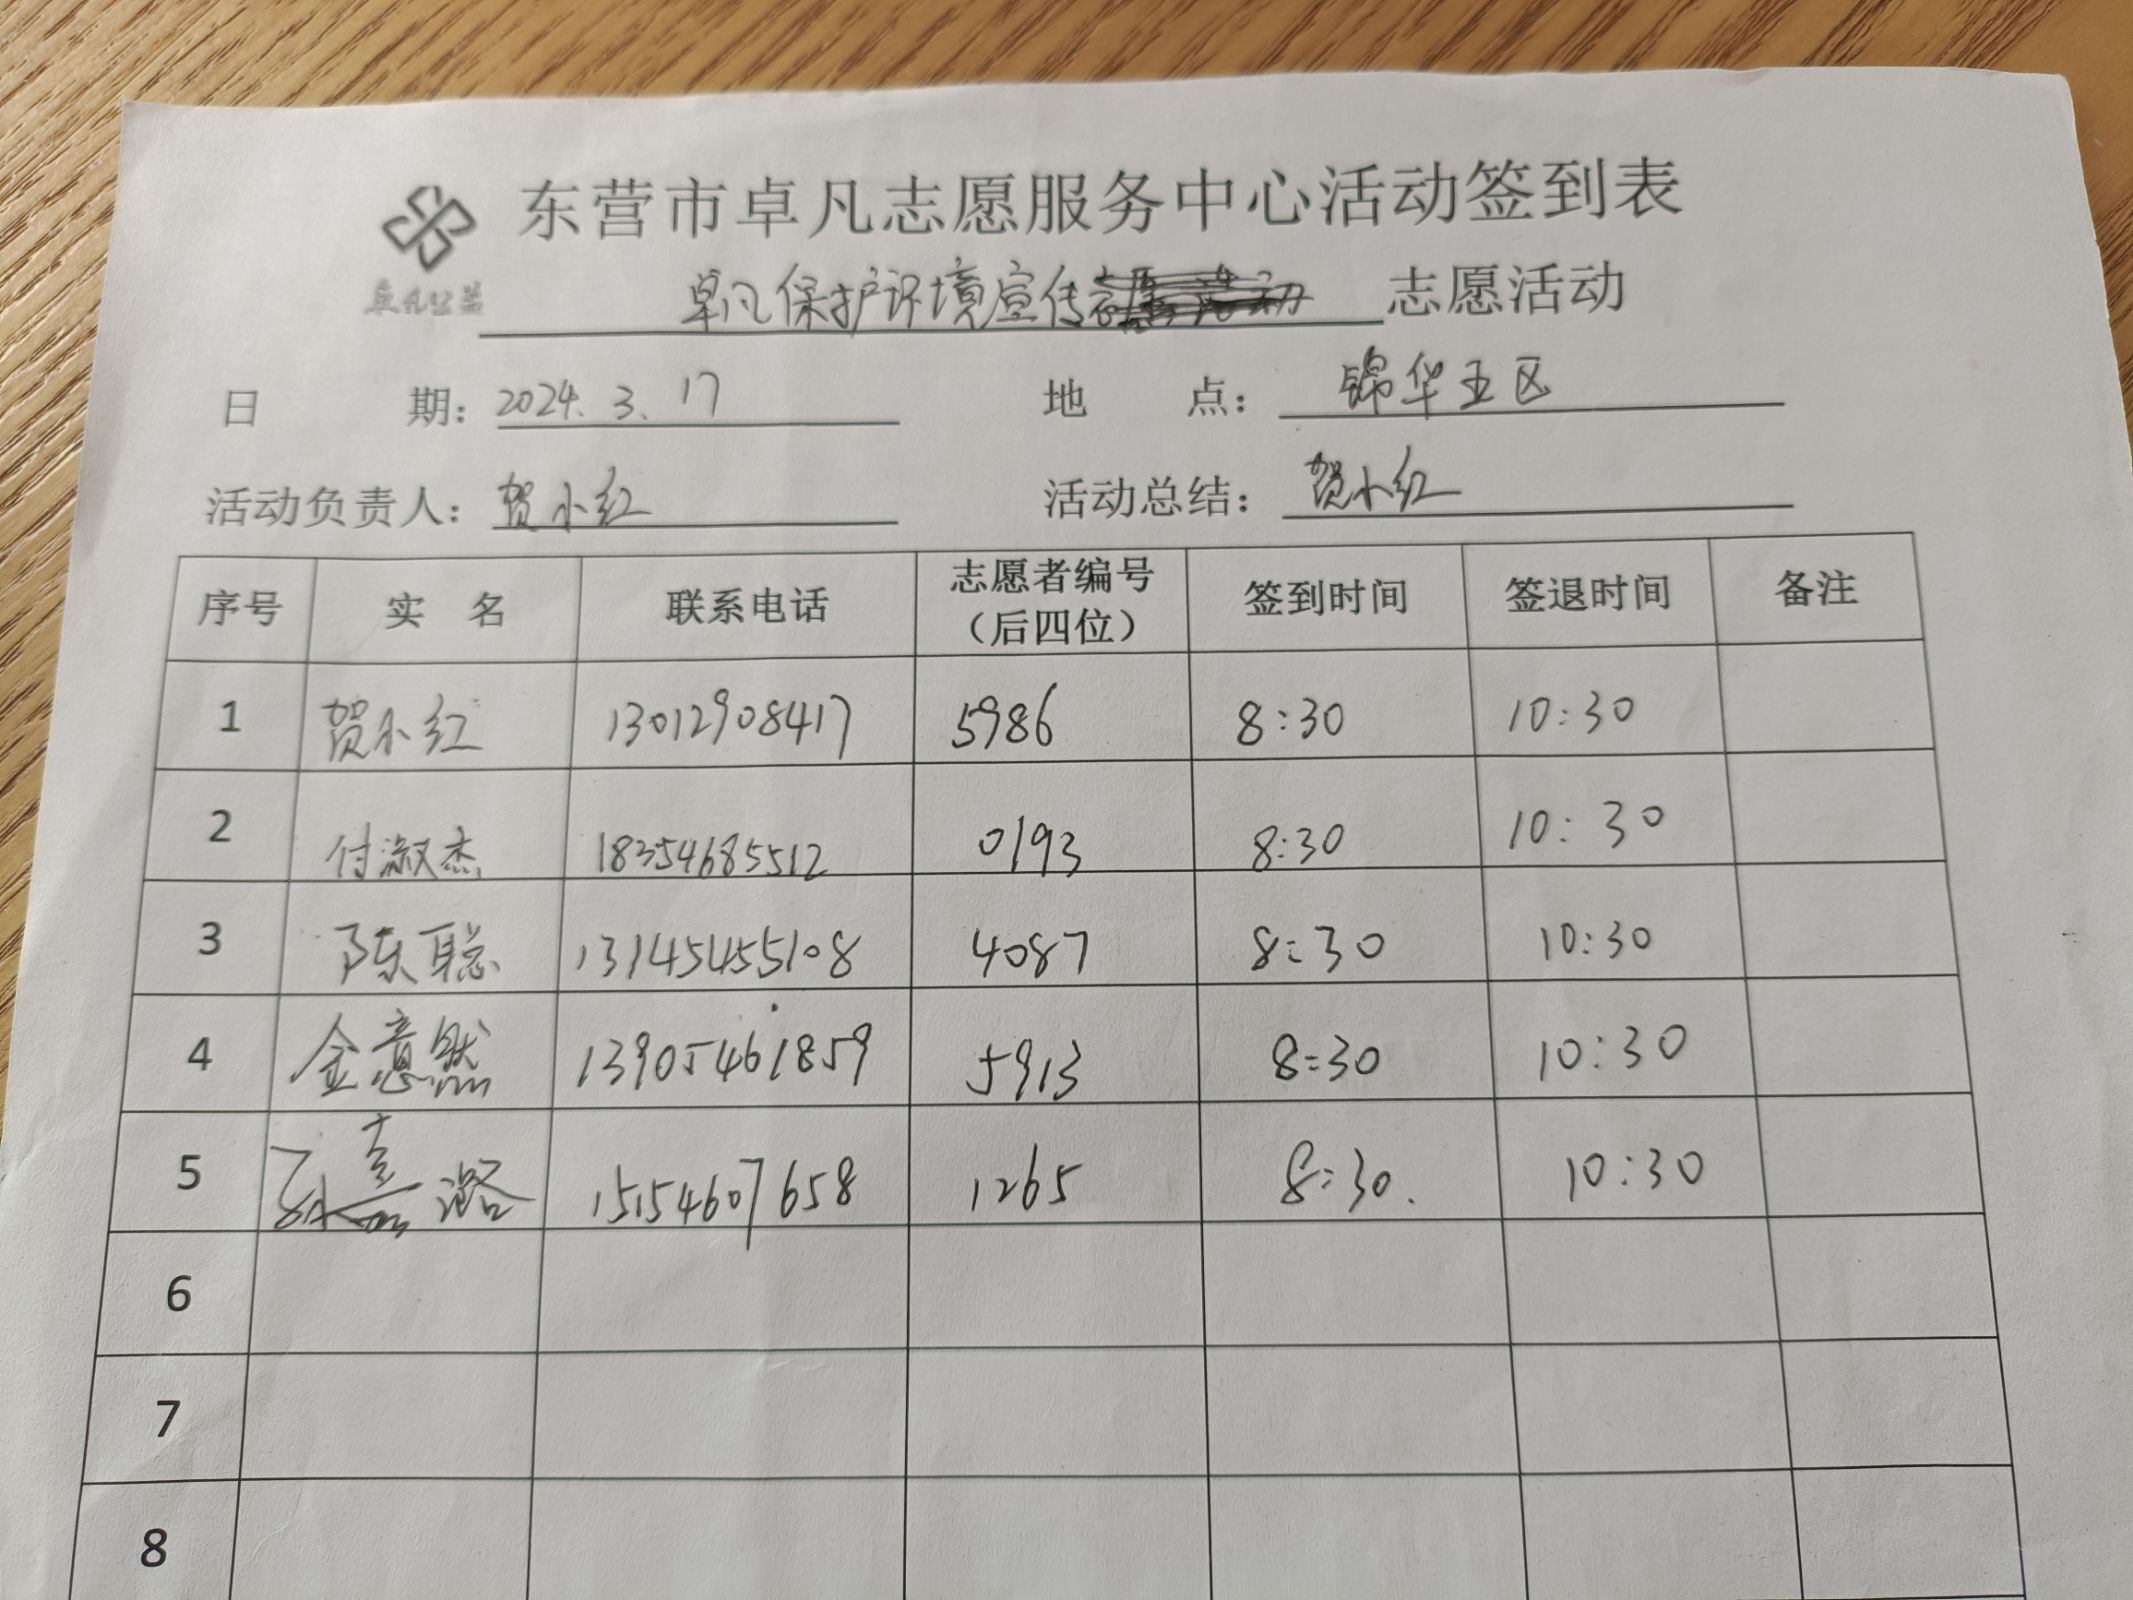 东营市卓凡志愿服务中心活动签到表
卓凡公益
卓凡保护环境宣传 志愿活动
日 期：2024.3.17 地 点：锦华五区
活动负责人：贺小红 活动总结：贺小红
序号 实 名 联系电话 志愿者编号（后四位） 签到时间 签退时间 备注
1 贺小红 13012908417 5986 8:30 10:30
2 付淑杰 18354685512 0193 8:30 10:30
3 陈聪 13145455108 4087 8:30 10:30
4 金意然 13905461859 5913 8:30 10:30
5 孙 潞 15154607658 1265 8:30. 10:30
6
7
8